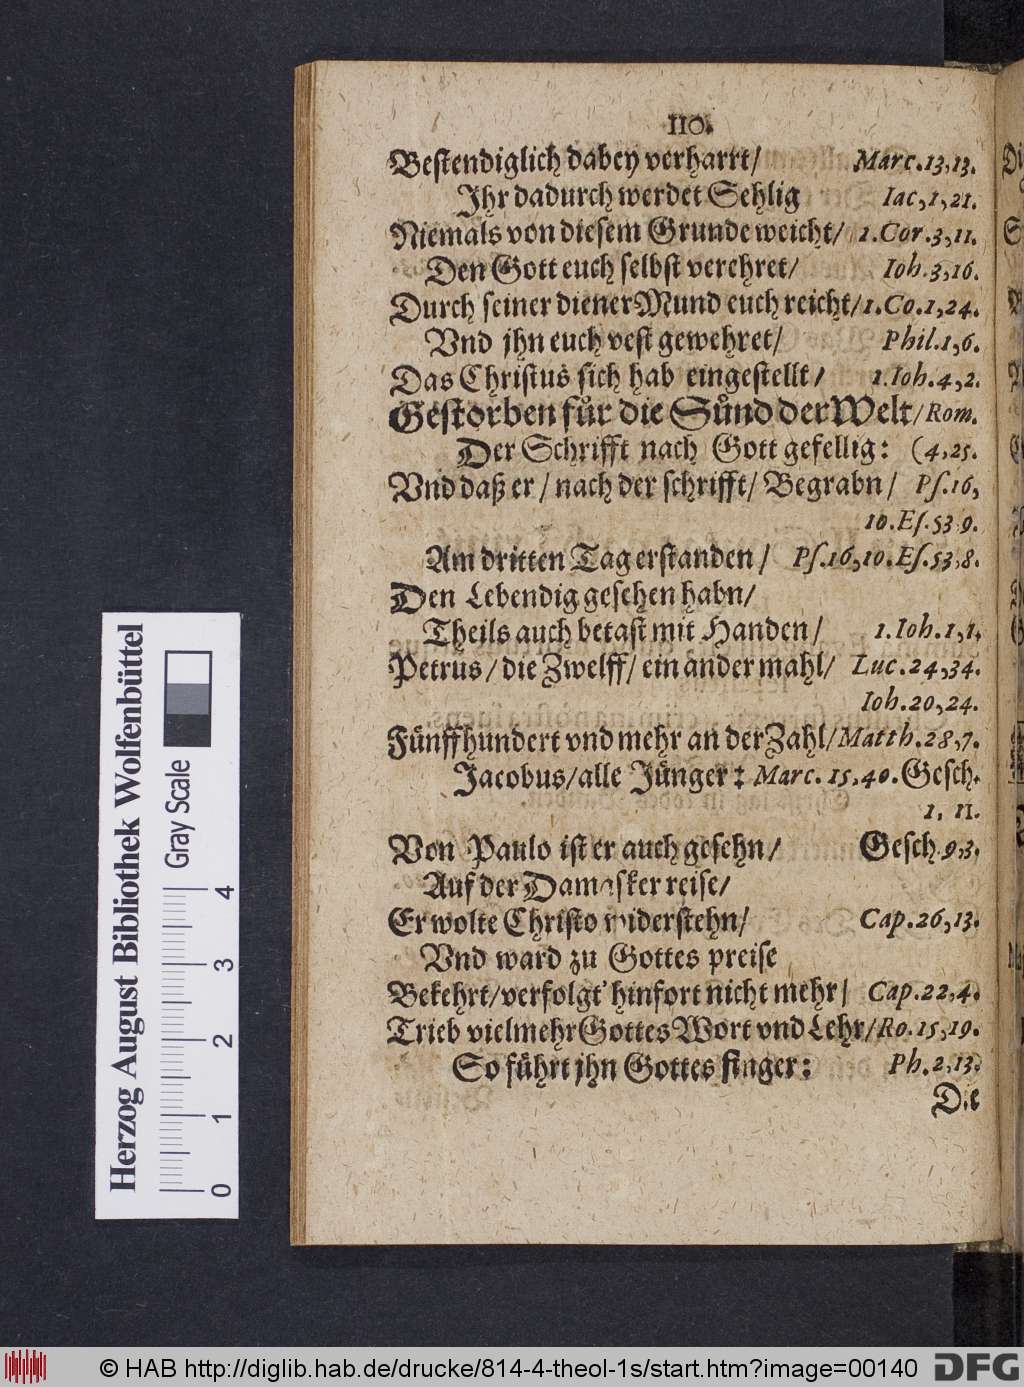 110.
Bestendiglich dabey verharrt/ Marc. 13,13.
Ihr dadurch werdet Sehlig Iac,1,21.
Niemals von diesem Grunde weicht/ 1.Cor.3,11.
Den Gott euch selbst verehret/ Ioh.3,16.
Durch seiner diener Mund euch reicht/1.Co.1,24.
Vnd jhn euch vest gewehret/ Phil.1,6.
Das Christus sich hab eingestellt/ 1.Ioh.4,2.
Gestorben fůr die Sůnd der Welt/Rom.
Der Schrifft nach Gott gefellig: (4,25.
Vnd daß er/ nach der schrifft/ Begrabn/ Pſ.16,
10.Eſ.53 9.
Am dritten Tag erstanden/ Pſ.16,10.Eſ.53,8.
Den Lebendig gesehen habn/
Theils auch betast mit Handen/ 1.Ioh.1,1.
Petrus/ die Zwelff/ ein ander mahl/ Luc.24,34.
Ioh.20,24.
Fůnffhundert vnd mehr an der Zahl/Matth.28,7.
Jacobus/alle Jůnger: Marc. 15,40. Gesch.
1, 11.
Von Paulo ist er auch gesehn/ Gesch 9,3.
Auf der Damasker reise/
Er wolte Christo widerstehn/ Cap.26,13.
Vnd ward zu Gottes preise
Bekehrt/verfolgt' hinfort nicht mehr/ Cap.22,4.
Trieb vielmehr Gottes Wort vnd Lehr/Ro.15,19.
So fůhrt jhn Gottes finger: Ph.2,13.
Die
Herzog August Bibliothek Wolfenbüttel
Gray Scale
0 1 2 3 4
© HAB http://diglib.hab.de/drucke/814-4-theol-1s/start.htm?image=00140
DFG